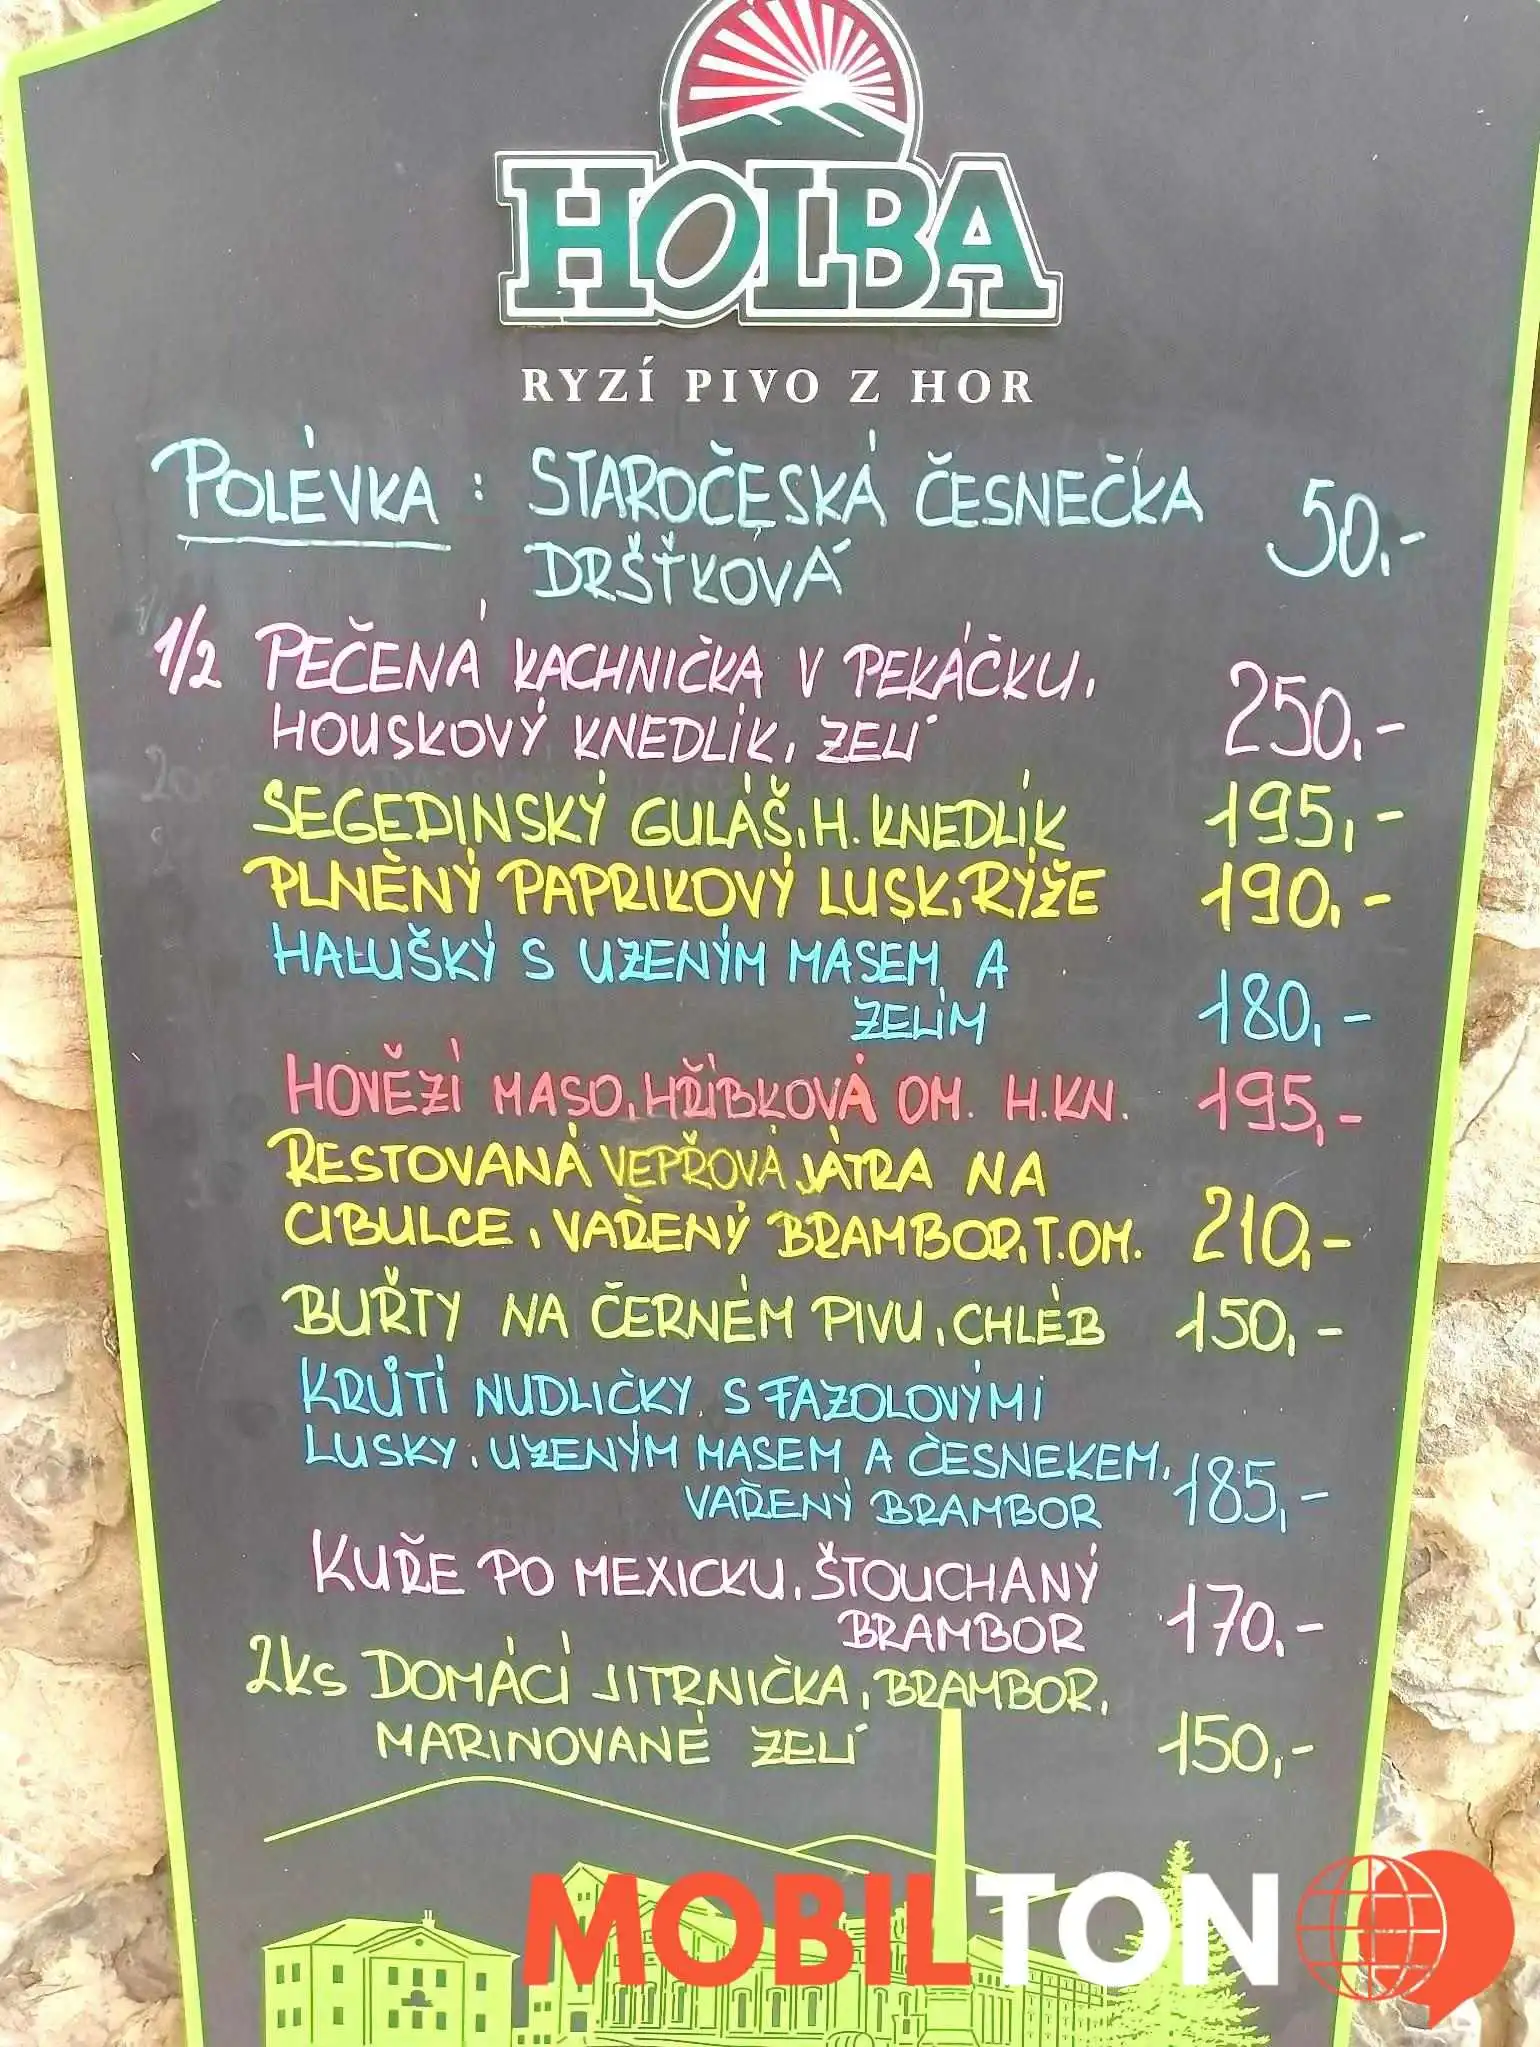 HOLBA
RYZÍ PIVO Z HOR
POLÉVKA : STAROČESKÁ ČESNEČKA 50,-
DRŠŤKOVÁ
1/2 PEČENÁ KACHNIČKA V PEKÁČKU,
HOUSKOVÝ KNEDLÍK, ZELÍ 250,-
SEGEDINSKÝ GULÁŠ, H. KNEDLÍK 195,-
PLNĚNÝ PAPRIKOVÝ LUSK, RÝŽE 190,-
HALUŠKÝ S UZENÝM MASEM A
ZELÍM 180,-
HOVĚZÍ MASO, HŘÍBKOVÁ OM. H.KN. 195,-
RESTOVANÁ VEPŘOVÁ JÁTRA NA
CIBULCE, VAŘENÝ BRAMBOR, T.OM. 210,-
BUŘTY NA ČERNÉM PIVU, CHLÉB 150,-
KRŮTÍ NUDLIČKY S FAZOLOVÝMI
LUSKY, UZENÝM MASEM A ČESNEKEM, 185,-
VAŘENÝ BRAMBOR
KUŘE PO MEXICKU, ŠTOUCHANÝ
BRAMBOR 170,-
2KS DOMÁCÍ JITRNIČKA, BRAMBOR,
MARINOVANÉ ZELÍ 150,-
MOBILTON